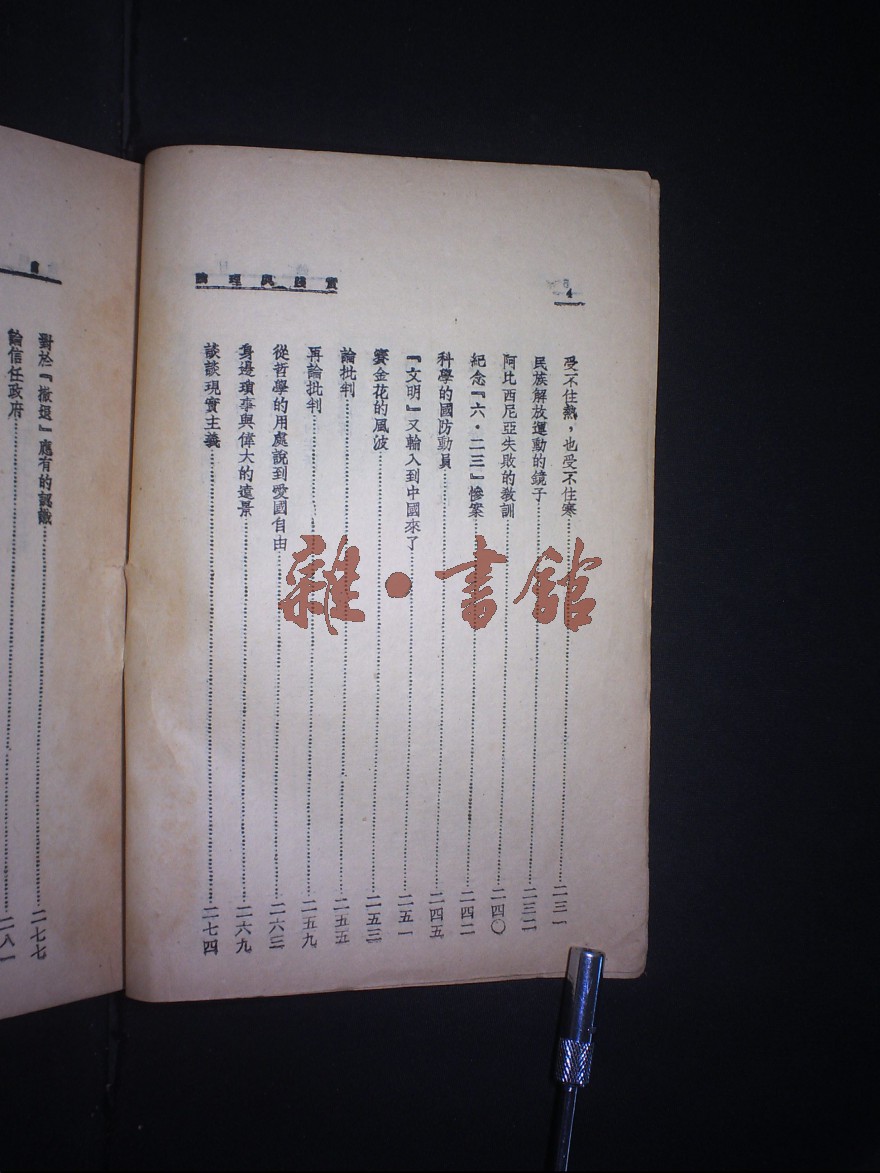 4
論理與踐實
受不住熱，也受不住寒……二三一
民族解放運動的鏡子……二三二
阿比西尼亞失敗的教訓……二四〇
紀念『六・二三』慘案……二四二
科學的國防動員……二四五
『文明』又輸入到中國來了……二五一
賽金花的風波……二五三
論批判……二五五
再論批判……二五九
從哲學的用處說到愛國自由……二六三
身邊瑣事與偉大的遠景……二六九
談談現實主義……二七四
對於『撤退』應有的認識……二七七
論信任政府……二八一
雜・書館